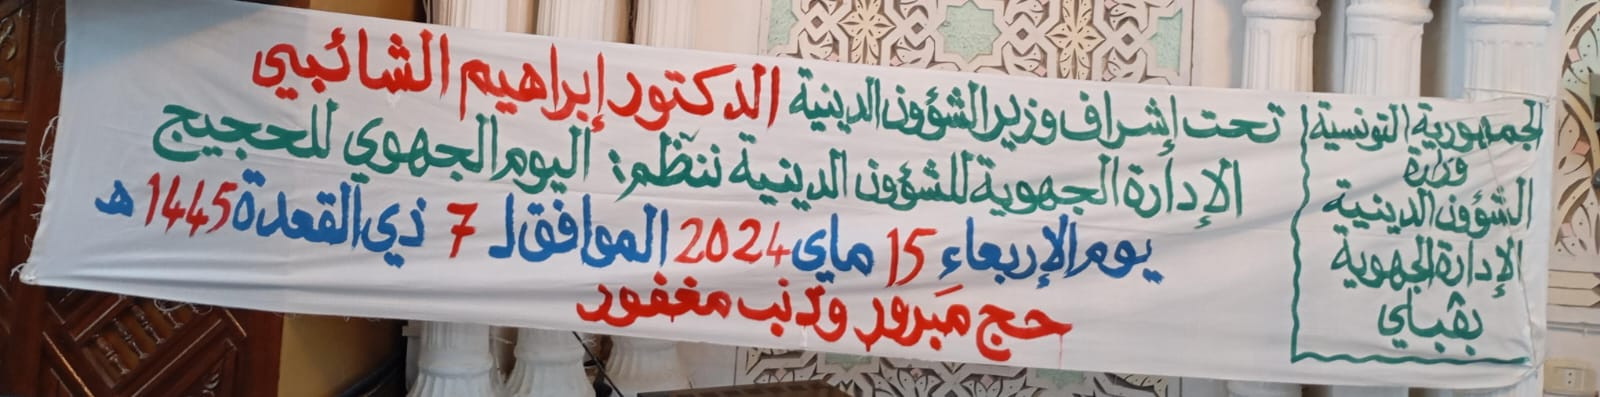 الجمهورية التونسية
وزارة
الشؤون الدينية
الإدارة الجهوية
بڤبلي
تحت إشراف وزير الشؤون الدينية الدكتور إبراهيم الشائبي
الإدارة الجهوية للشؤون الدينية تنظّم: اليوم الجهوي للحجيج
يوم الإربعاء 15 ماي 2024 الموافق لـ 7 ذي القعدة 1445 هـ
حج مَبرور وذنب مغفور